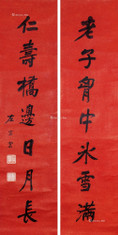 老子胷中冰雪滿
仁壽橘邊日月長